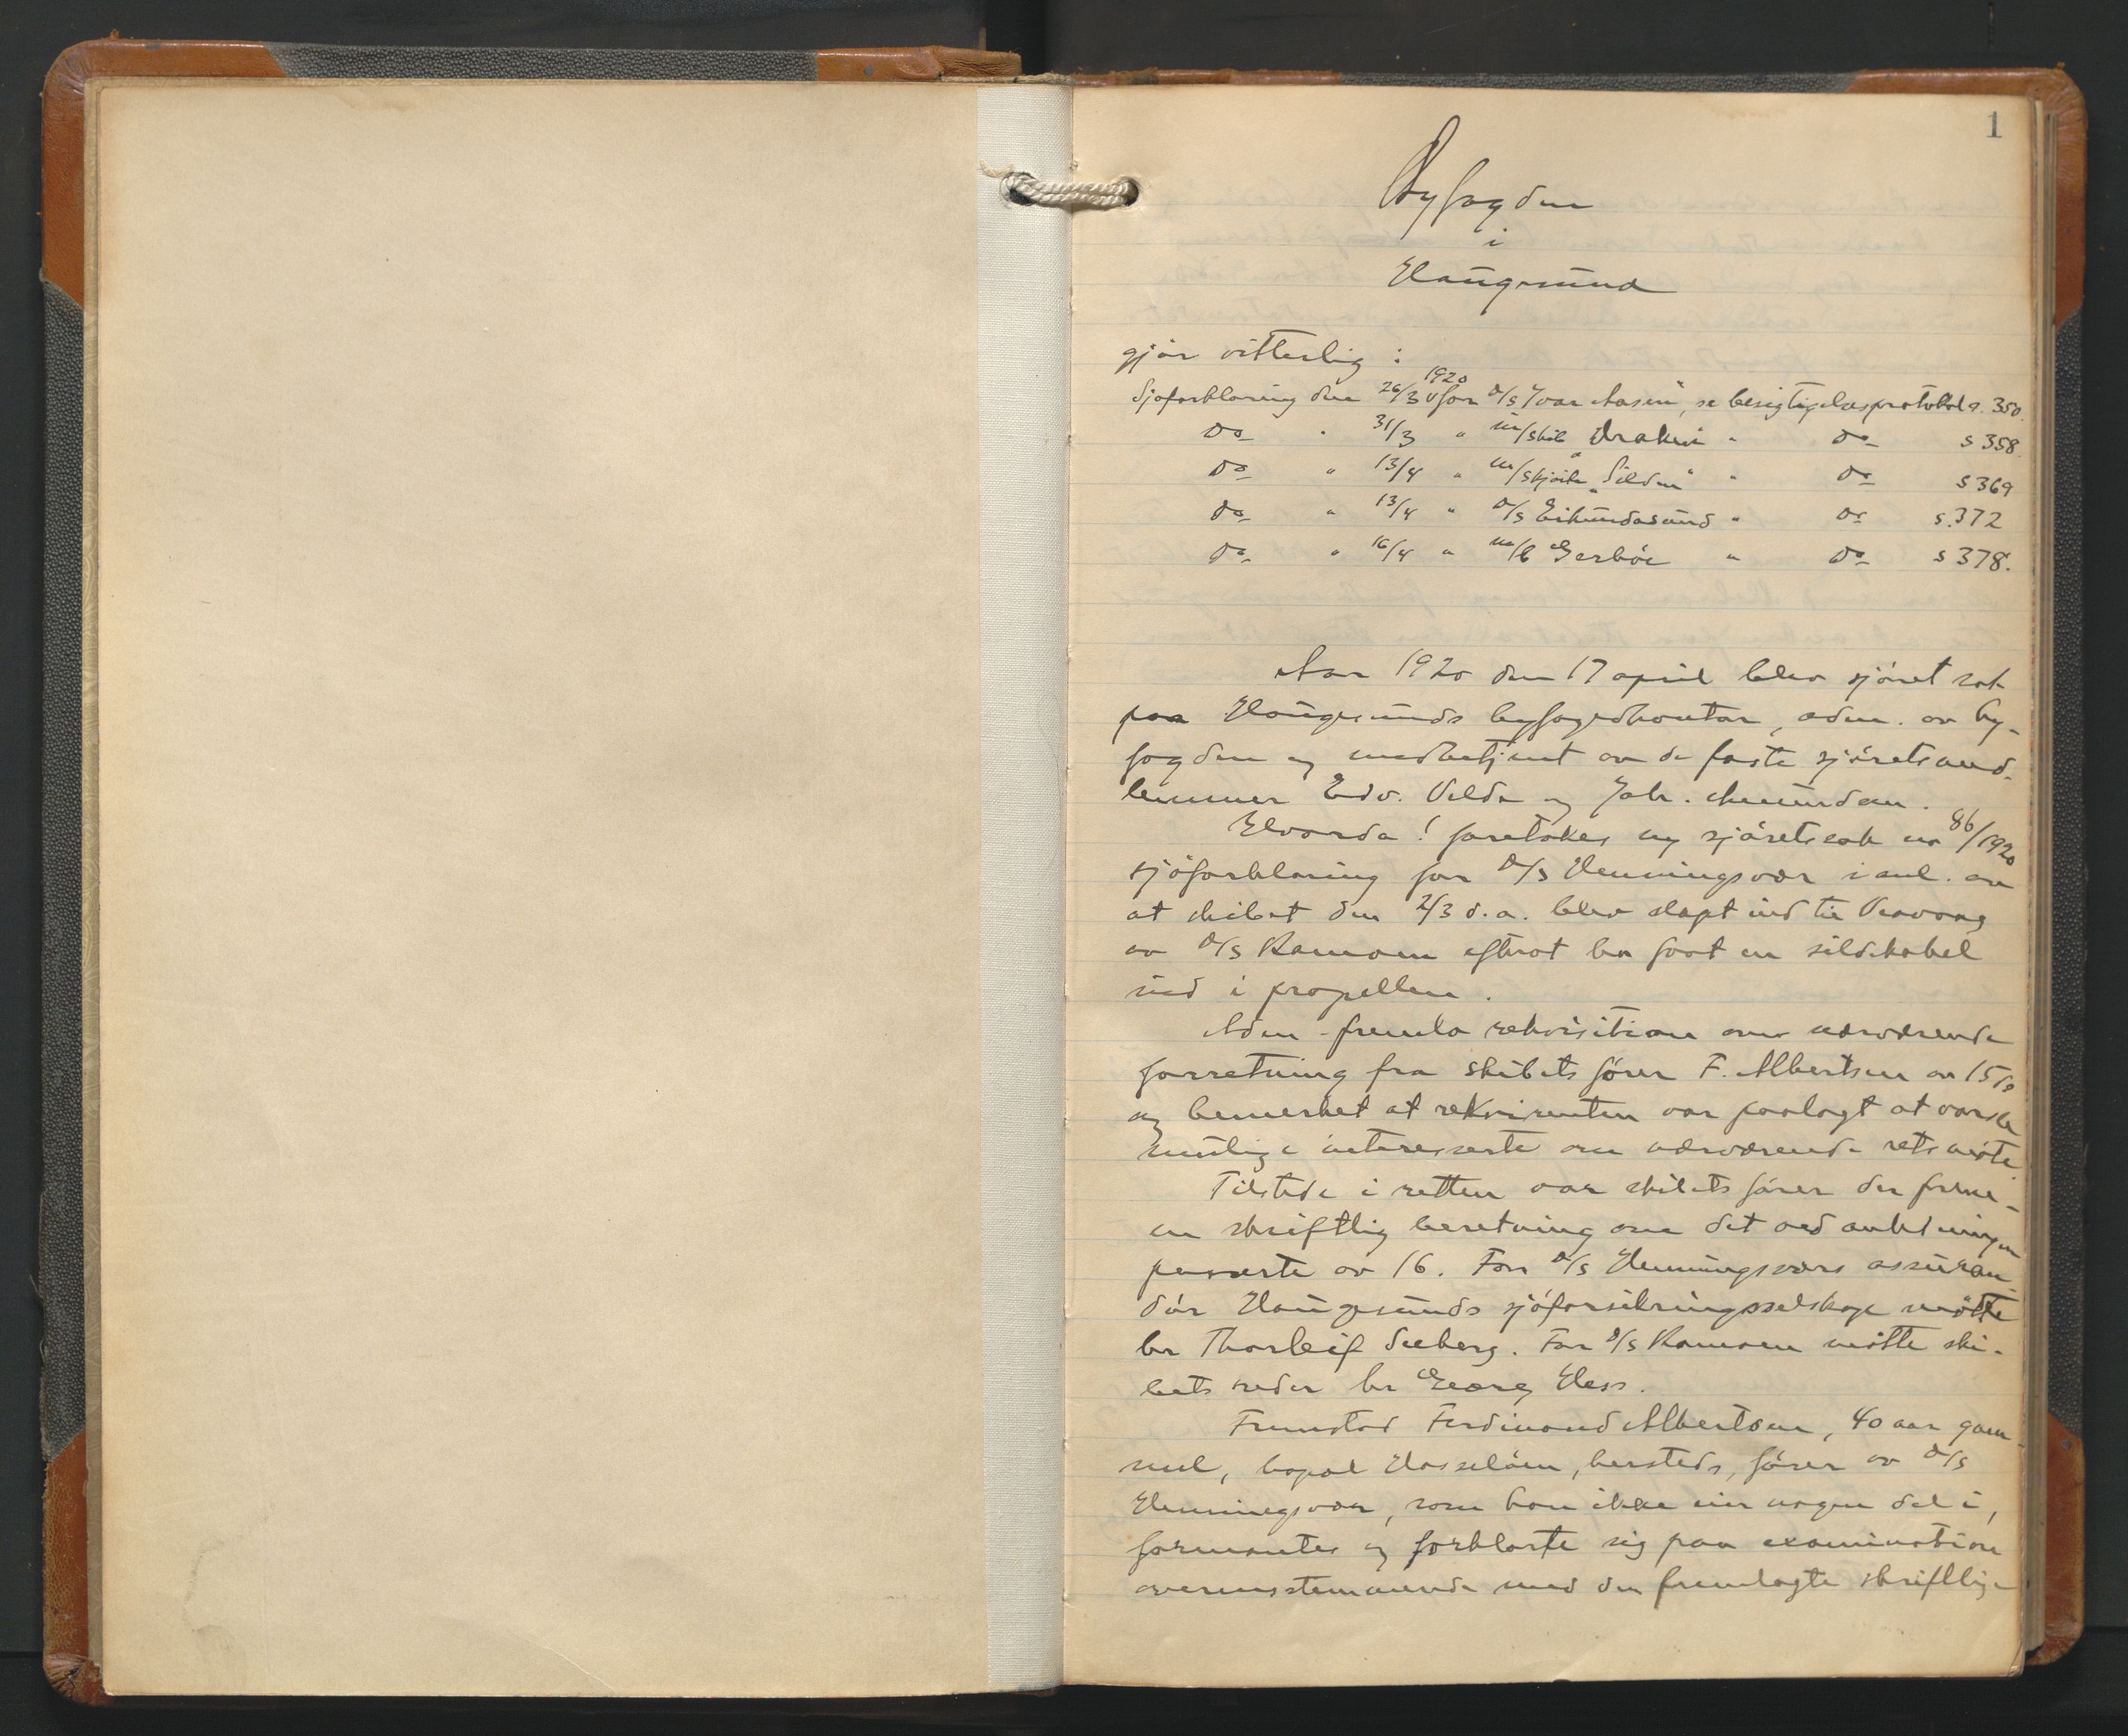 1
Byfogden
i
Haugesund
gjör vitterlig :
Sjoforklaring den 26/3 1920 for D/S "Ivar Aasen", se besigtigelsesprotokol s. 350.
do " 31/3 " m/skib Draken " do s 358.
do " 13/4 " m/skjöite "Silden" " do s 369
do " 13/4 " D/S Eikundasund " do s. 372
do " 16/4 " m/k " do s 378.
Aar 1920 den 17 april blev sjöret sat
paa Haugesunds byfogedkontor, adm. av by-
fogden og medbetjent av de faste sjöretsmed-
lemmer Edv. Valde og Joh. Amundsen.
Hvorda! foretokes ny sjöretssak nr 86/1920
sjöforklaring for D/S Henningsvær i anl. av
at skibet den 2/3 d.a. blev slæpt ind til Veavaag
av D/S Ramoen efterat ha faat en sildekabel
ind i propellen.
Adm. fremla rekvisition om nærværende
forretning fra skibets förer F. Albertsen av 15 ds
og bemerket at rekvirenten var paalagt at varsle
mulige interesserte om nærværende retsmöte.
Tilstede i retten var skibets förer der freml-
en skriftlig beretning om det ved anledningen
passerte av 16. For D/S Henningsværs assuran-
dör Haugesunds sjöforsikringsselskap mötte
hr Thorleif Seeberg. For D/S Ramoen mötte ski-
bets reder hr Georg Hess.
Fremstod Ferdinand Albertsen, 40 aar gam-
mel, bopæl Hasselöen, hersteds, förer av D/S
Henningsvær, som han ikke eier nogen del i,
formantes og forklarte sig paa examination
overensstemmende med den fremlagte skriftlige